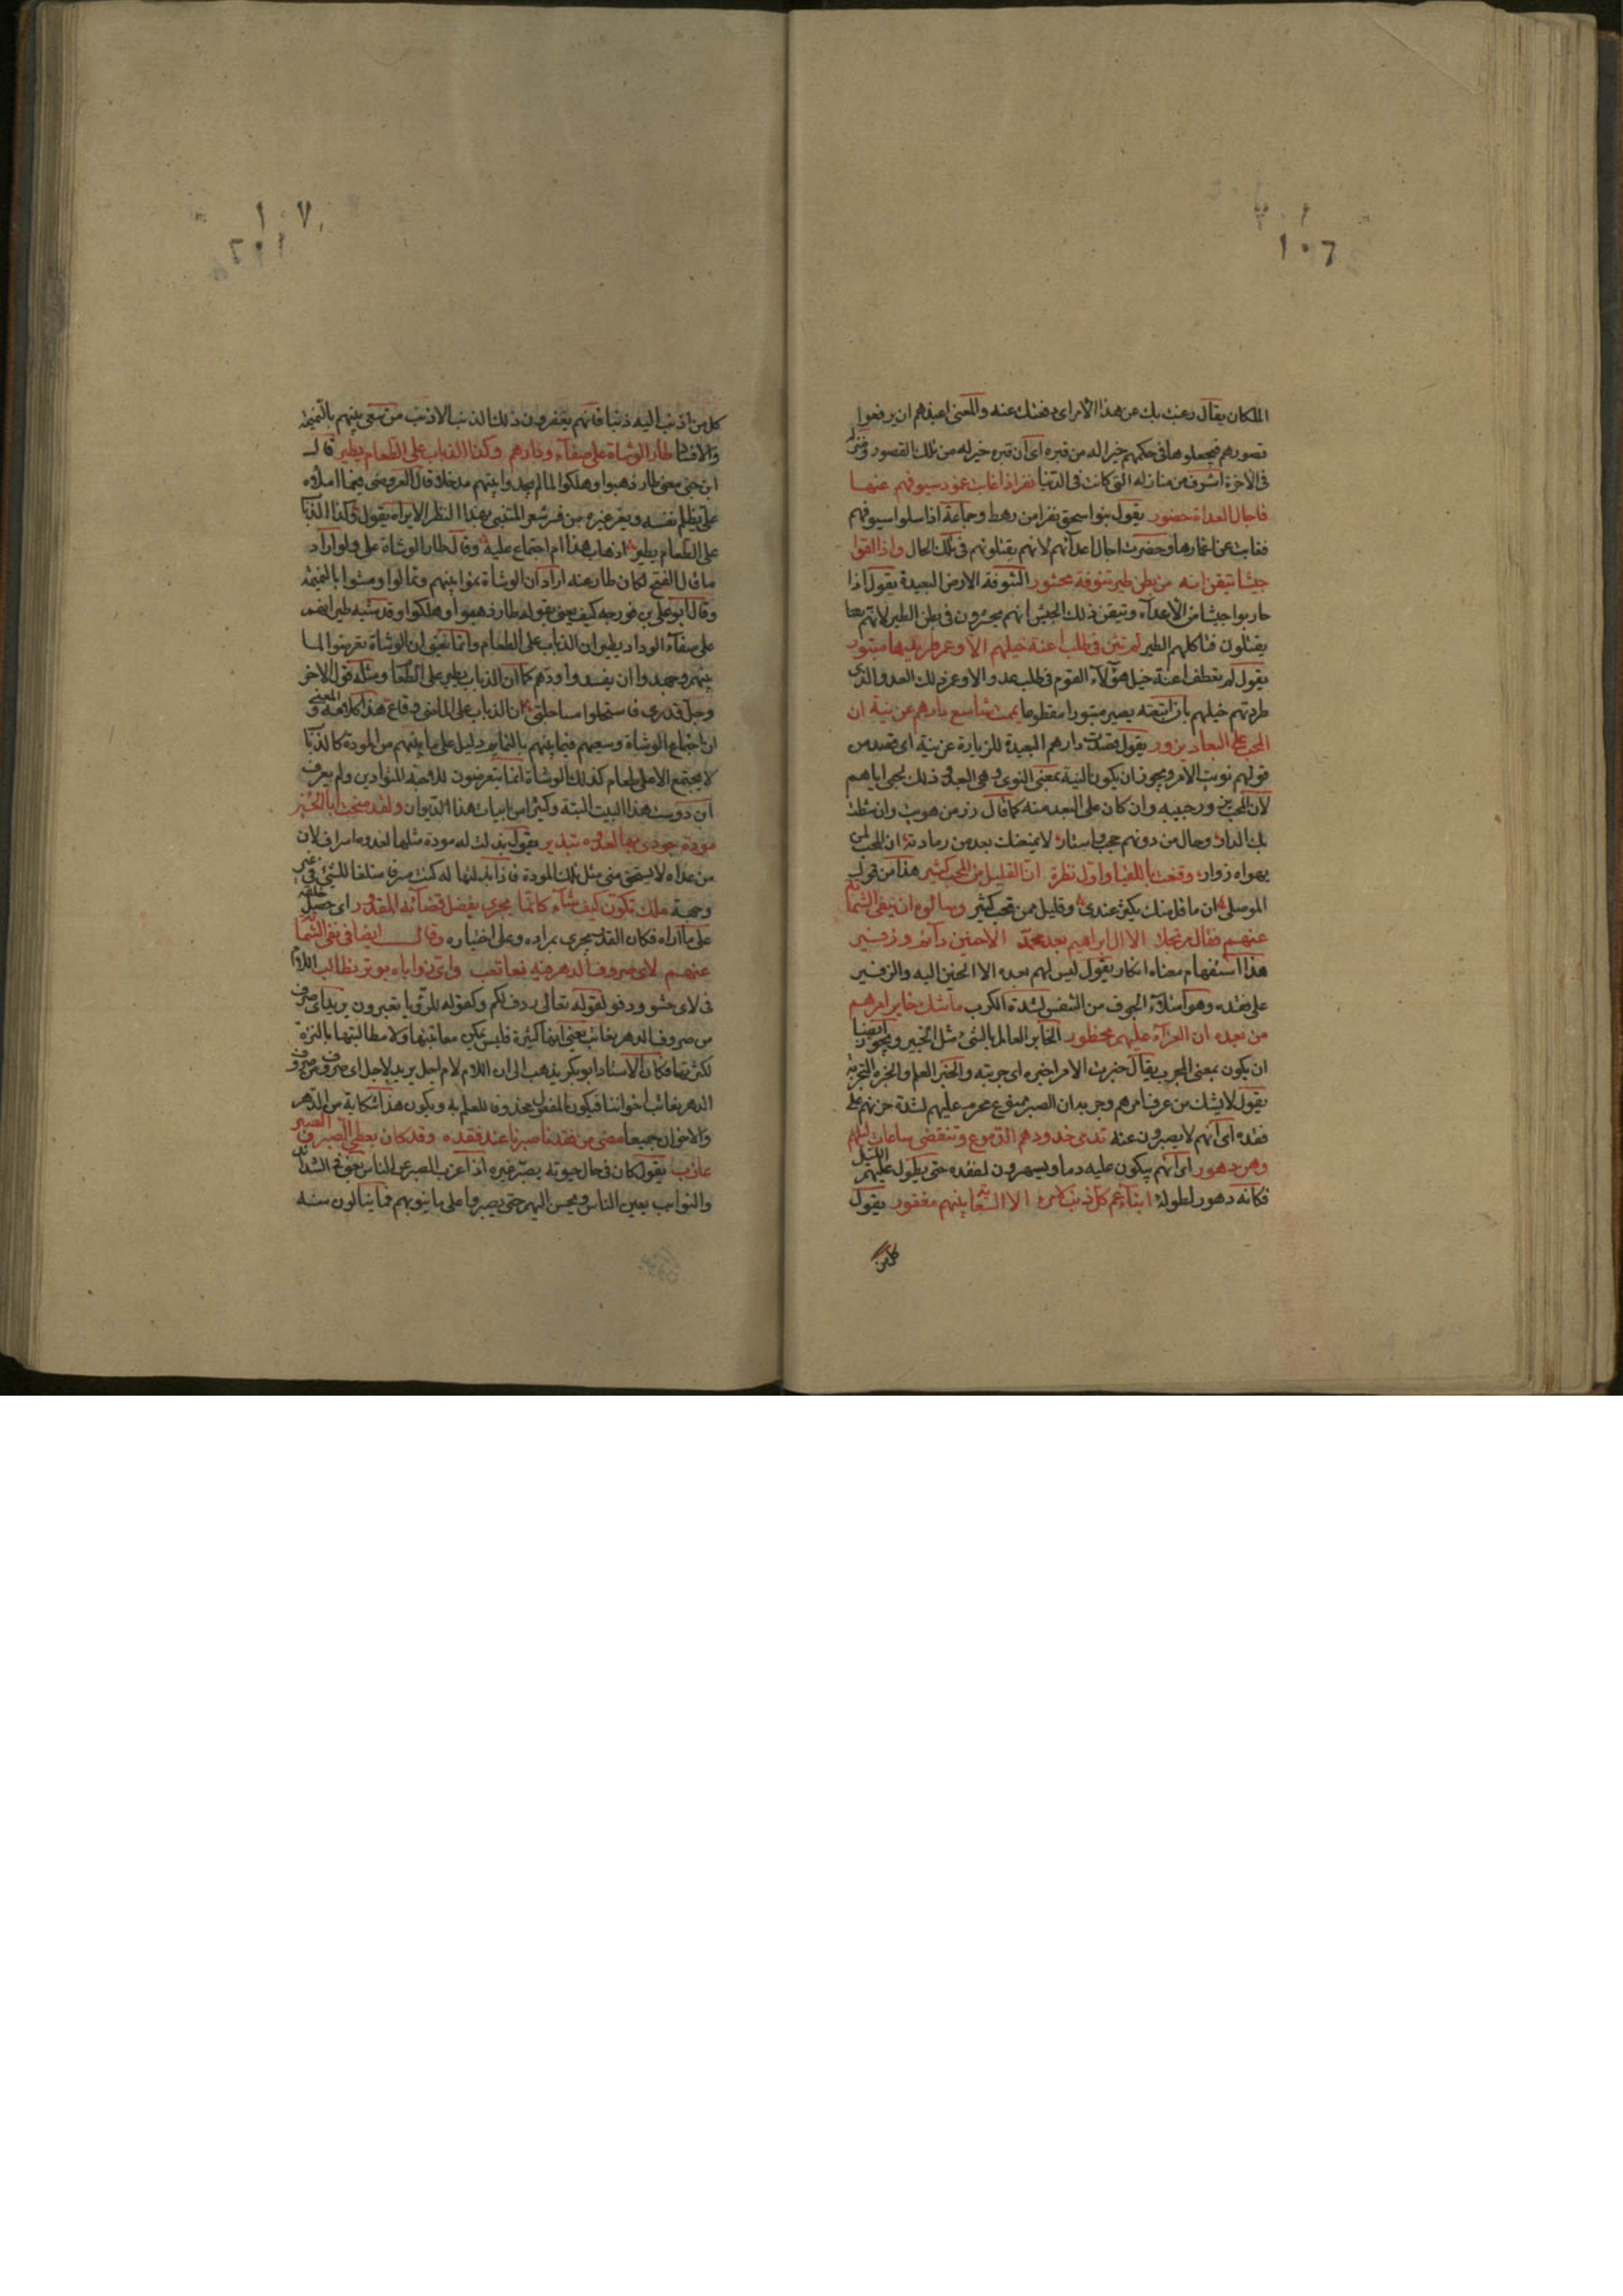 ١٠٦
المكان يقال رغبت بك عن هذا الامر اى رفعتك عنه والمعنى اعيذهم ان يرفعوا
قصورهم فيجعلوها فى حكمهم خيرا له من قبره اى ان قبره خير له من تلك القصور ومنزله
فى الآخرة اشرف من منازله التى كانت فى الدنيا نفر اذا غابت غمود سيوفهم عنها
فآجال العداة حضور يقول بنو اسحق نفر من رهط وجماعة اذا سلوا سيوفهم
فغابت عن اغمارها وحضرت آجال اعدآئهم لانهم يقتلونهم فى تلك الحال واذا لقوا
جيشا تيقن انه من بطن طير تنوفة محشور التنوفة الارض البعيدة يقول اذا
حاربوا جيشا من الاعدآء وتيقن ذلك الجيش انهم يحشرون فى بطن الطير لانهم
يقتلون فتاكلهم الطير لم تثن فى طلب اعنة خيلهم الا وعمر طريدها مبتور
يقول لم تعطف اعنة خيل هؤلآء القوم فى طلب عدو الا وعمر ذلك العدو الذى
طردتهم خيلهم يصير مبتورا مقطوعا يممت شاسع دارهم عن نية ان
المحب على البعاد يزور يقول قصدت دارهم البعيدة للزيارة عن نية اى قصد من
قولهم نويت الامر ويجوز ان يكون النية بمعنى النوى وهى البعد وذلك لحبى اياهم
لان المحب يزور حبيبه وان كان على البعد منه كما قال زر من هويت وان شطت
بك الدار وحال من دونهم حجب واستار لا يمنعنك بعد من زيارته ان المحب لمن
يهواه زوار وقنعت باللقيا واول نظرة ان القليل من المحب كثير هذا من قول
الموصلى ان ما قل منك يكثر عندى وقليل ممن تحب كثير وسألوه ان ينفى الشماتة
عنهم فقال مرتجلا الآل ابراهيم بعد محمد الا حنين دآئم وزفير
هذا استفهام معناه انكار يقول ليس لهم بعده الا الحنين اليه والزفير
على فقده وهو امتلآء الجوف من النفس لشدة الكرب ما شك خابر امرهم
من بعده ان العزآء عليهم محظور الخابر العالم بالشئ مثل الخبير ويجوز ايضا
ان يكون بمعنى المجرب يقال خبرت الامر اخبره اى جربته والخبر العلم والخبرة التجربة
يقول لا يشك من عرف امرهم وجرب ان الصبر ممنوع محرم عليهم لشدة حزنهم على
فقده اى انهم لا يصبرون عنه تدمى خدودهم الدموع وتنقضى ساعات ليلهم
وهن دهور اى انهم يبكون عليه دما ويسهرون لفقده حتى يطول عليهم الليل
فكانه دهور لطوله ابنآء عم كل ذنب لامرئ الا السعاية بينهم مغفور يقول
كل من
١٠٧
كل من اذنب اليه ذنبا فانهم يغفرون ذلك الذنب الا ذنب من سعى بينهم بالنميمة
والافساد طار الوشاة على صفآء ودادهم وكذا الذباب على الطعام يطير قال
ابن جنى معنى طار ذهبوا وهلكوا لما لم يجدوا بينهم مدخلا قال العروضى فيما املاه
على يظلم نفسه ويغر غيره من فسر شعر المتنبى بهذا النظر الا يراه يقول وكذا الذباب
على الطعام يطير اذهاب هذا ام اجتماع عليه وقال طار الوشاة على ولو اراد
ما قال الفتح لكان طار عنه اراد ان الوشاة نموا بينهم وتمالوا ومشوا بالنميمة
وقال ابو على بن فورجه كيف يعنى بقوله طار ذهبوا وهلكوا وقد شبه طيرانهم
على صفآء الوداد بطيران الذباب على الطعام وانما يعنى ان الوشاة تعرضوا لما
بينهم وجهدوا ان يفسدوا ودهم كما ان الذباب يطير على الطعام ومثله قول الآخر
وجل قدرى فاستحلوا مساجلتى ان الذباب على الماذى وقاع هذا كلامه والمعنى
ان اجتماع الوشاة وسعيهم فيما بينهم بالنمايم دليل على ما بينهم من المودة كالذباب
لا يجتمع الا على طعام كذلك الوشاة انما يتعرضون للاحبة المتوادين ولم يعرف
ابن دوست هذا البيت البتة وكثيرا من ابيات هذا الديوان ولقد منحت ابا الحسين
مودة جودى بها لعدوه تبذير يقول بذلت له مودة مثلها لعدوه اسراف لان
من عداه لا يستحق منى مثل تلك المودة فاذا بذلتها له كنت مسرفا متلفا للشئ فى غير
وجهه ملك تكون كيف شآء كانما يجرى بفضل قضآئه المقدور اى حصل خلقه
على ما اراه فكان القدر يجرى بمراده وعلى اختياره وقال ايضا فى نفى الشماتة
عنهم لاى صروف الدهر فيه نعاتب واى رزاياه بوتر نطالب اللام
فى لاى حشو ودفو لقوله تعالى ردف لكم وكقوله للرؤيا تعبرون يريد اى صروف
من صروف الدهر نعاتب يعنى انها كثيرة فليس يمكن معاتبتها ولا مطالبتها بالترة
لكثرتها فكان الاستاد ابو بكر يذهب الى ان اللام لام اجل يريد لاجل اى صروف من صروف
الدهر نعاتب اخواننا فيكون المفعول محذوفا للعلم به ويكون هذا شكاية من الدهر
والاخوان جميعا مضى من فقدنا صبرنا عند فقده وقد كان يعطى الصبر والصبر
عازب يقول كان فى حال حيوته يصبر غيره اذا عزب الصبر عن الناس يعنى فى الشدائد
والنوايب يعين الناس ويحسن اليهم حتى يصبروا على ما ينوبهم فما ينالون منه